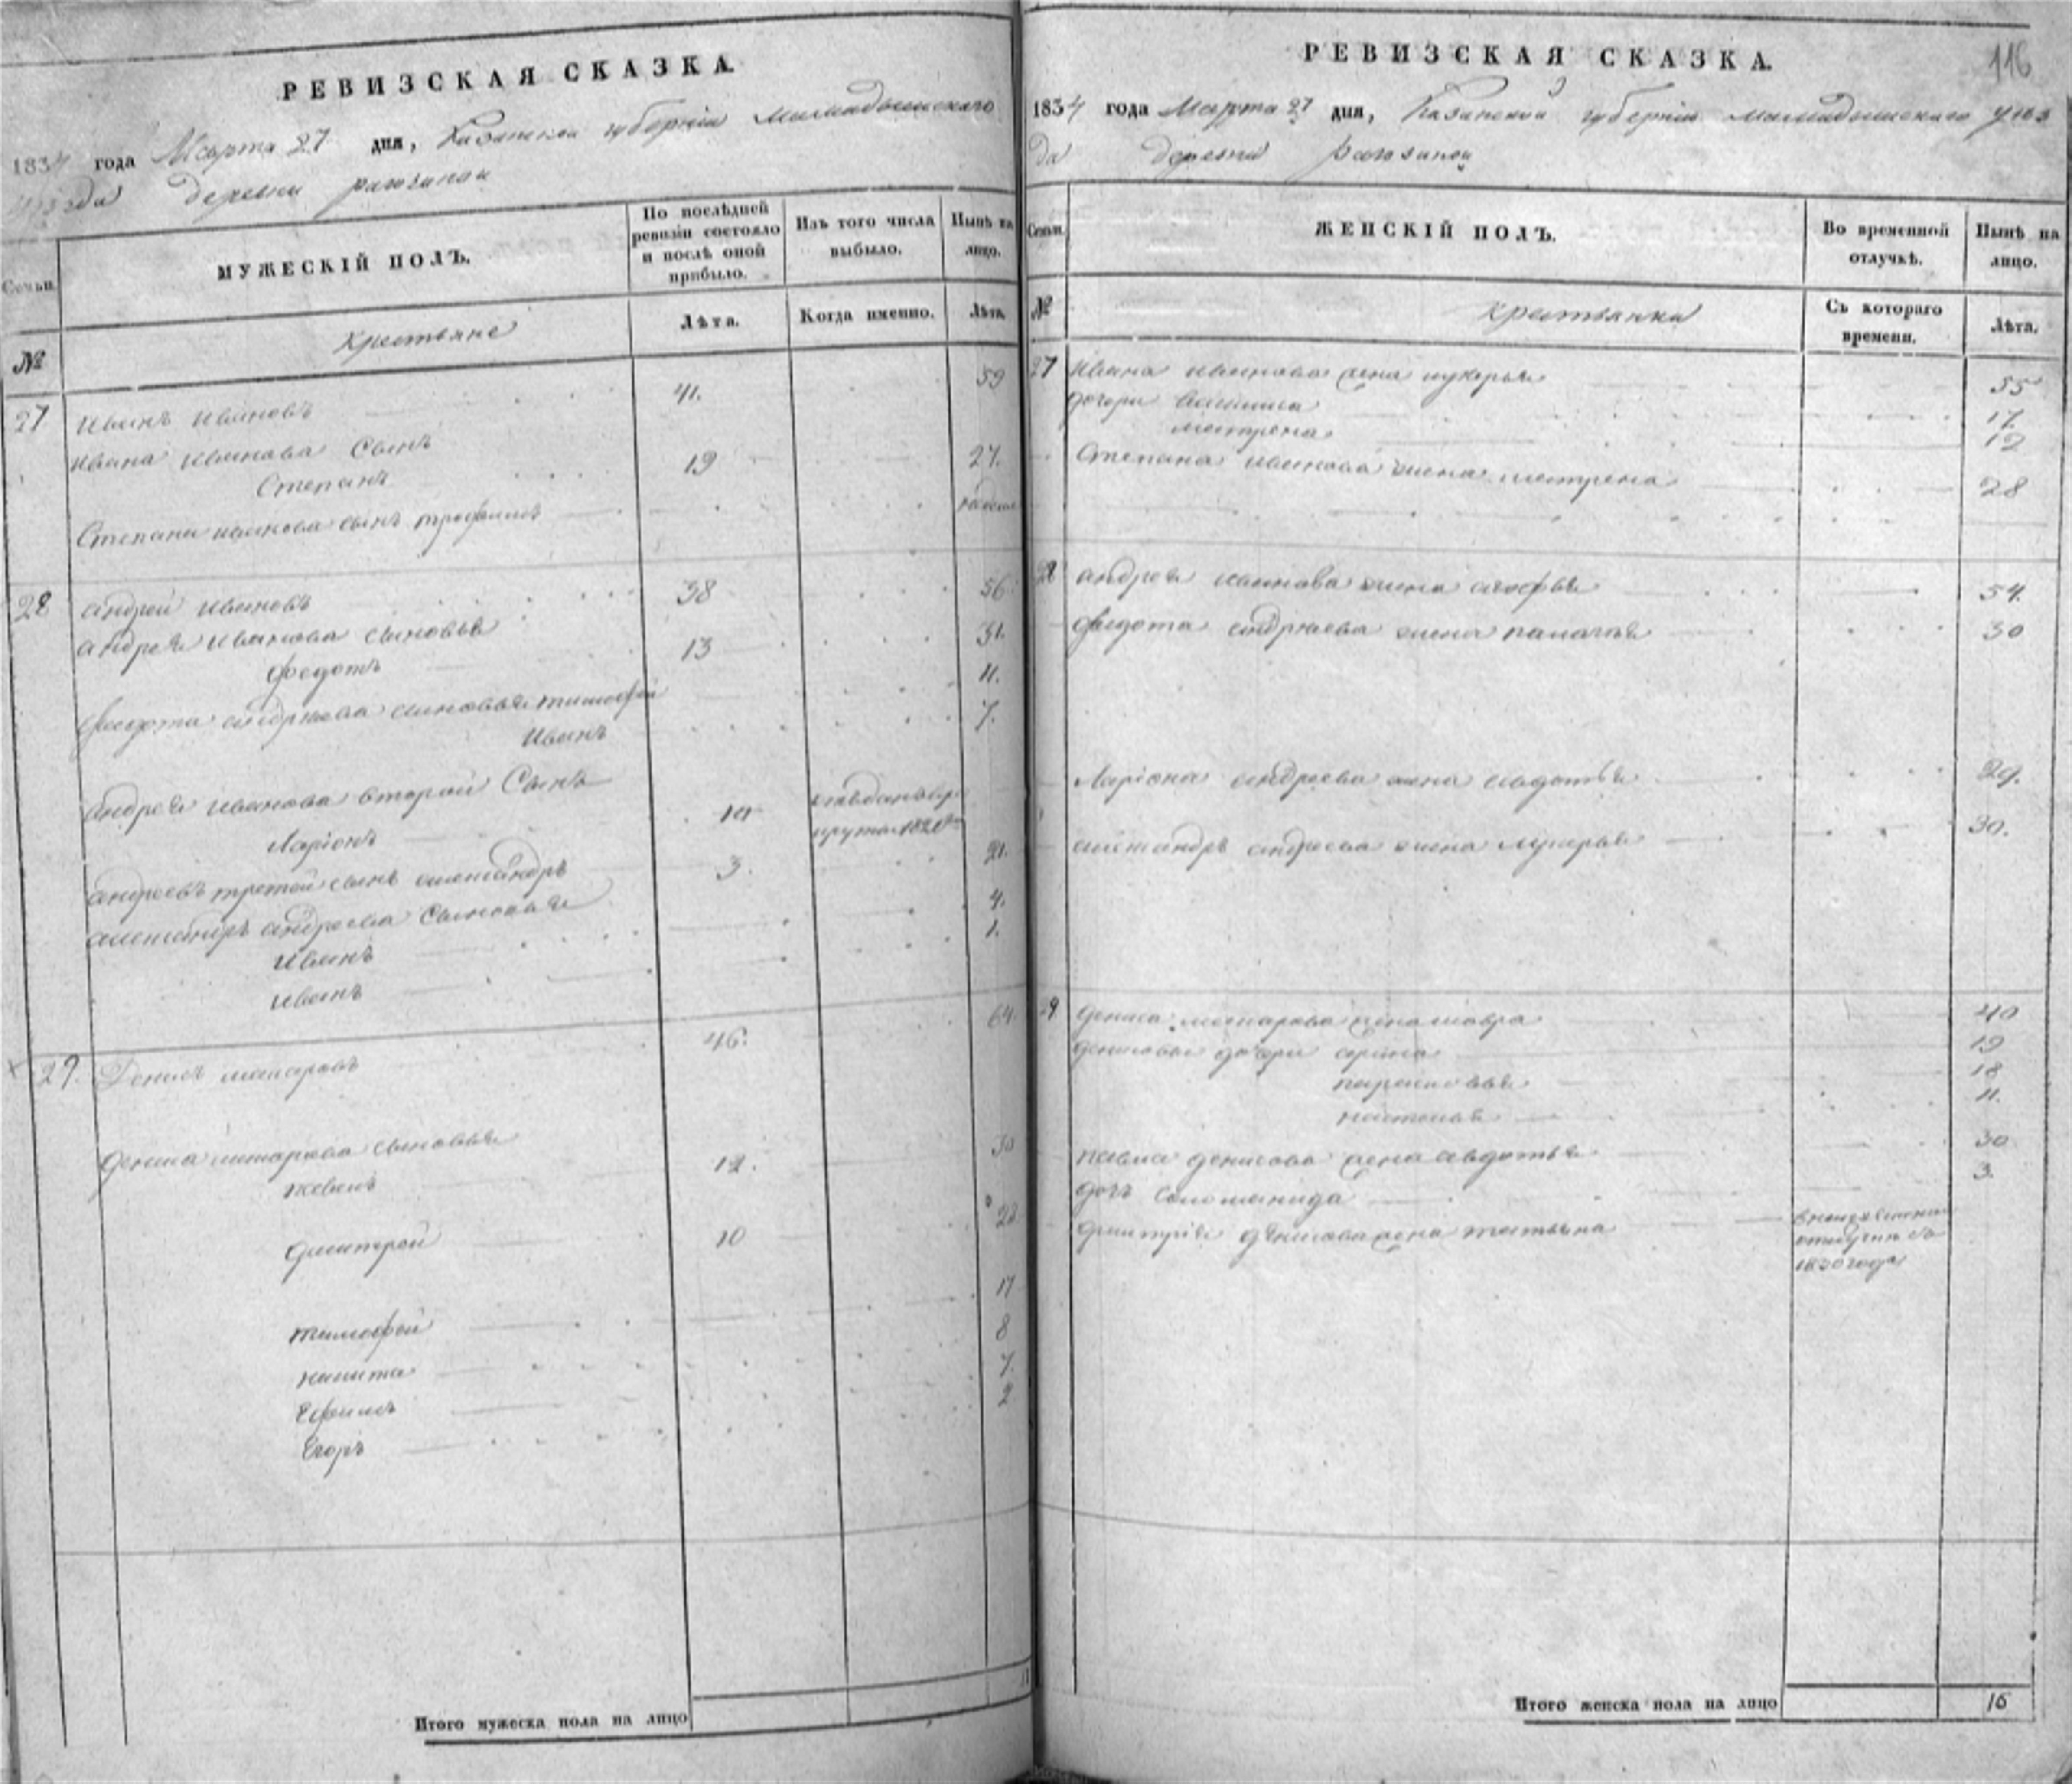 РЕВИЗСКАЯ СКАЗКА.
1834 года Марта 27 дня, Казанской губернии Мамадышскаго
уезда деревни
Семьи.
МУЖЕСКІЙ ПОЛЪ.
По послѣдней ревизіи состояло и послѣ оной прибыло.
Изъ того числа выбыло.
Нынѣ на лицо.
№
крестьяне
Лѣта.
Когда именно.
Лѣта.
27 Иванъ Ивановъ 41. 59
Ивана Иванова Сынъ
Степанъ 19 27.
Степана иванова сынъ трофимъ
28 андрей Ивановъ 38 56
андрея Иванова сыновья
федотъ 13 31.
федота андреева сыновья тимофей 11.
Иванъ 7.
андрея иванова второй Сынъ
Ларіонъ
андреевъ третей сынъ александръ 3. 21.
александръ андреева Сыновья
Иванъ 4.
иванъ 1.
29. Денисъ макаровъ 46. 64
Дениса макарова сыновья
12. 30
дмитрей 10 28
тимофей 17
никита 8
Ефимъ 7.
Егоръ 2
Итого мужеска пола на лицо
РЕВИЗСКАЯ СКАЗКА.
116
1834 года Марта 27 дня, Казанской губерніи мамадышскаго уез
да деревни
Семьи.
ЖЕНСКІЙ ПОЛЪ.
Во временной отлучкѣ.
Нынѣ на лицо.
№
крестьянки
Съ котораго времени.
Лѣта.
27 Ивана иванова жена лукерья 55
дочери 17.
матрена 12
Степана иванова жена матрена 28
28 андрея иванова жена агафья 54.
федота андреева жена палагея 30
Ларіона андреева жена авдотья 29.
александръ андреева жена 30.
29 дениса макарова жена мавра 40
денисовы дочери арина 19
парасковья 18
настасья 11.
павла денисова жена авдотья 30
дочь Соломанида 3.
дмитрія денисова жена татьяна
1830 года
Итого женска пола на лицо 15